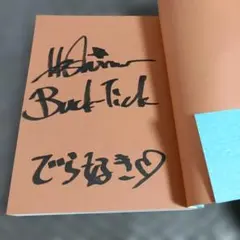 Buck Tick
でら好き♡